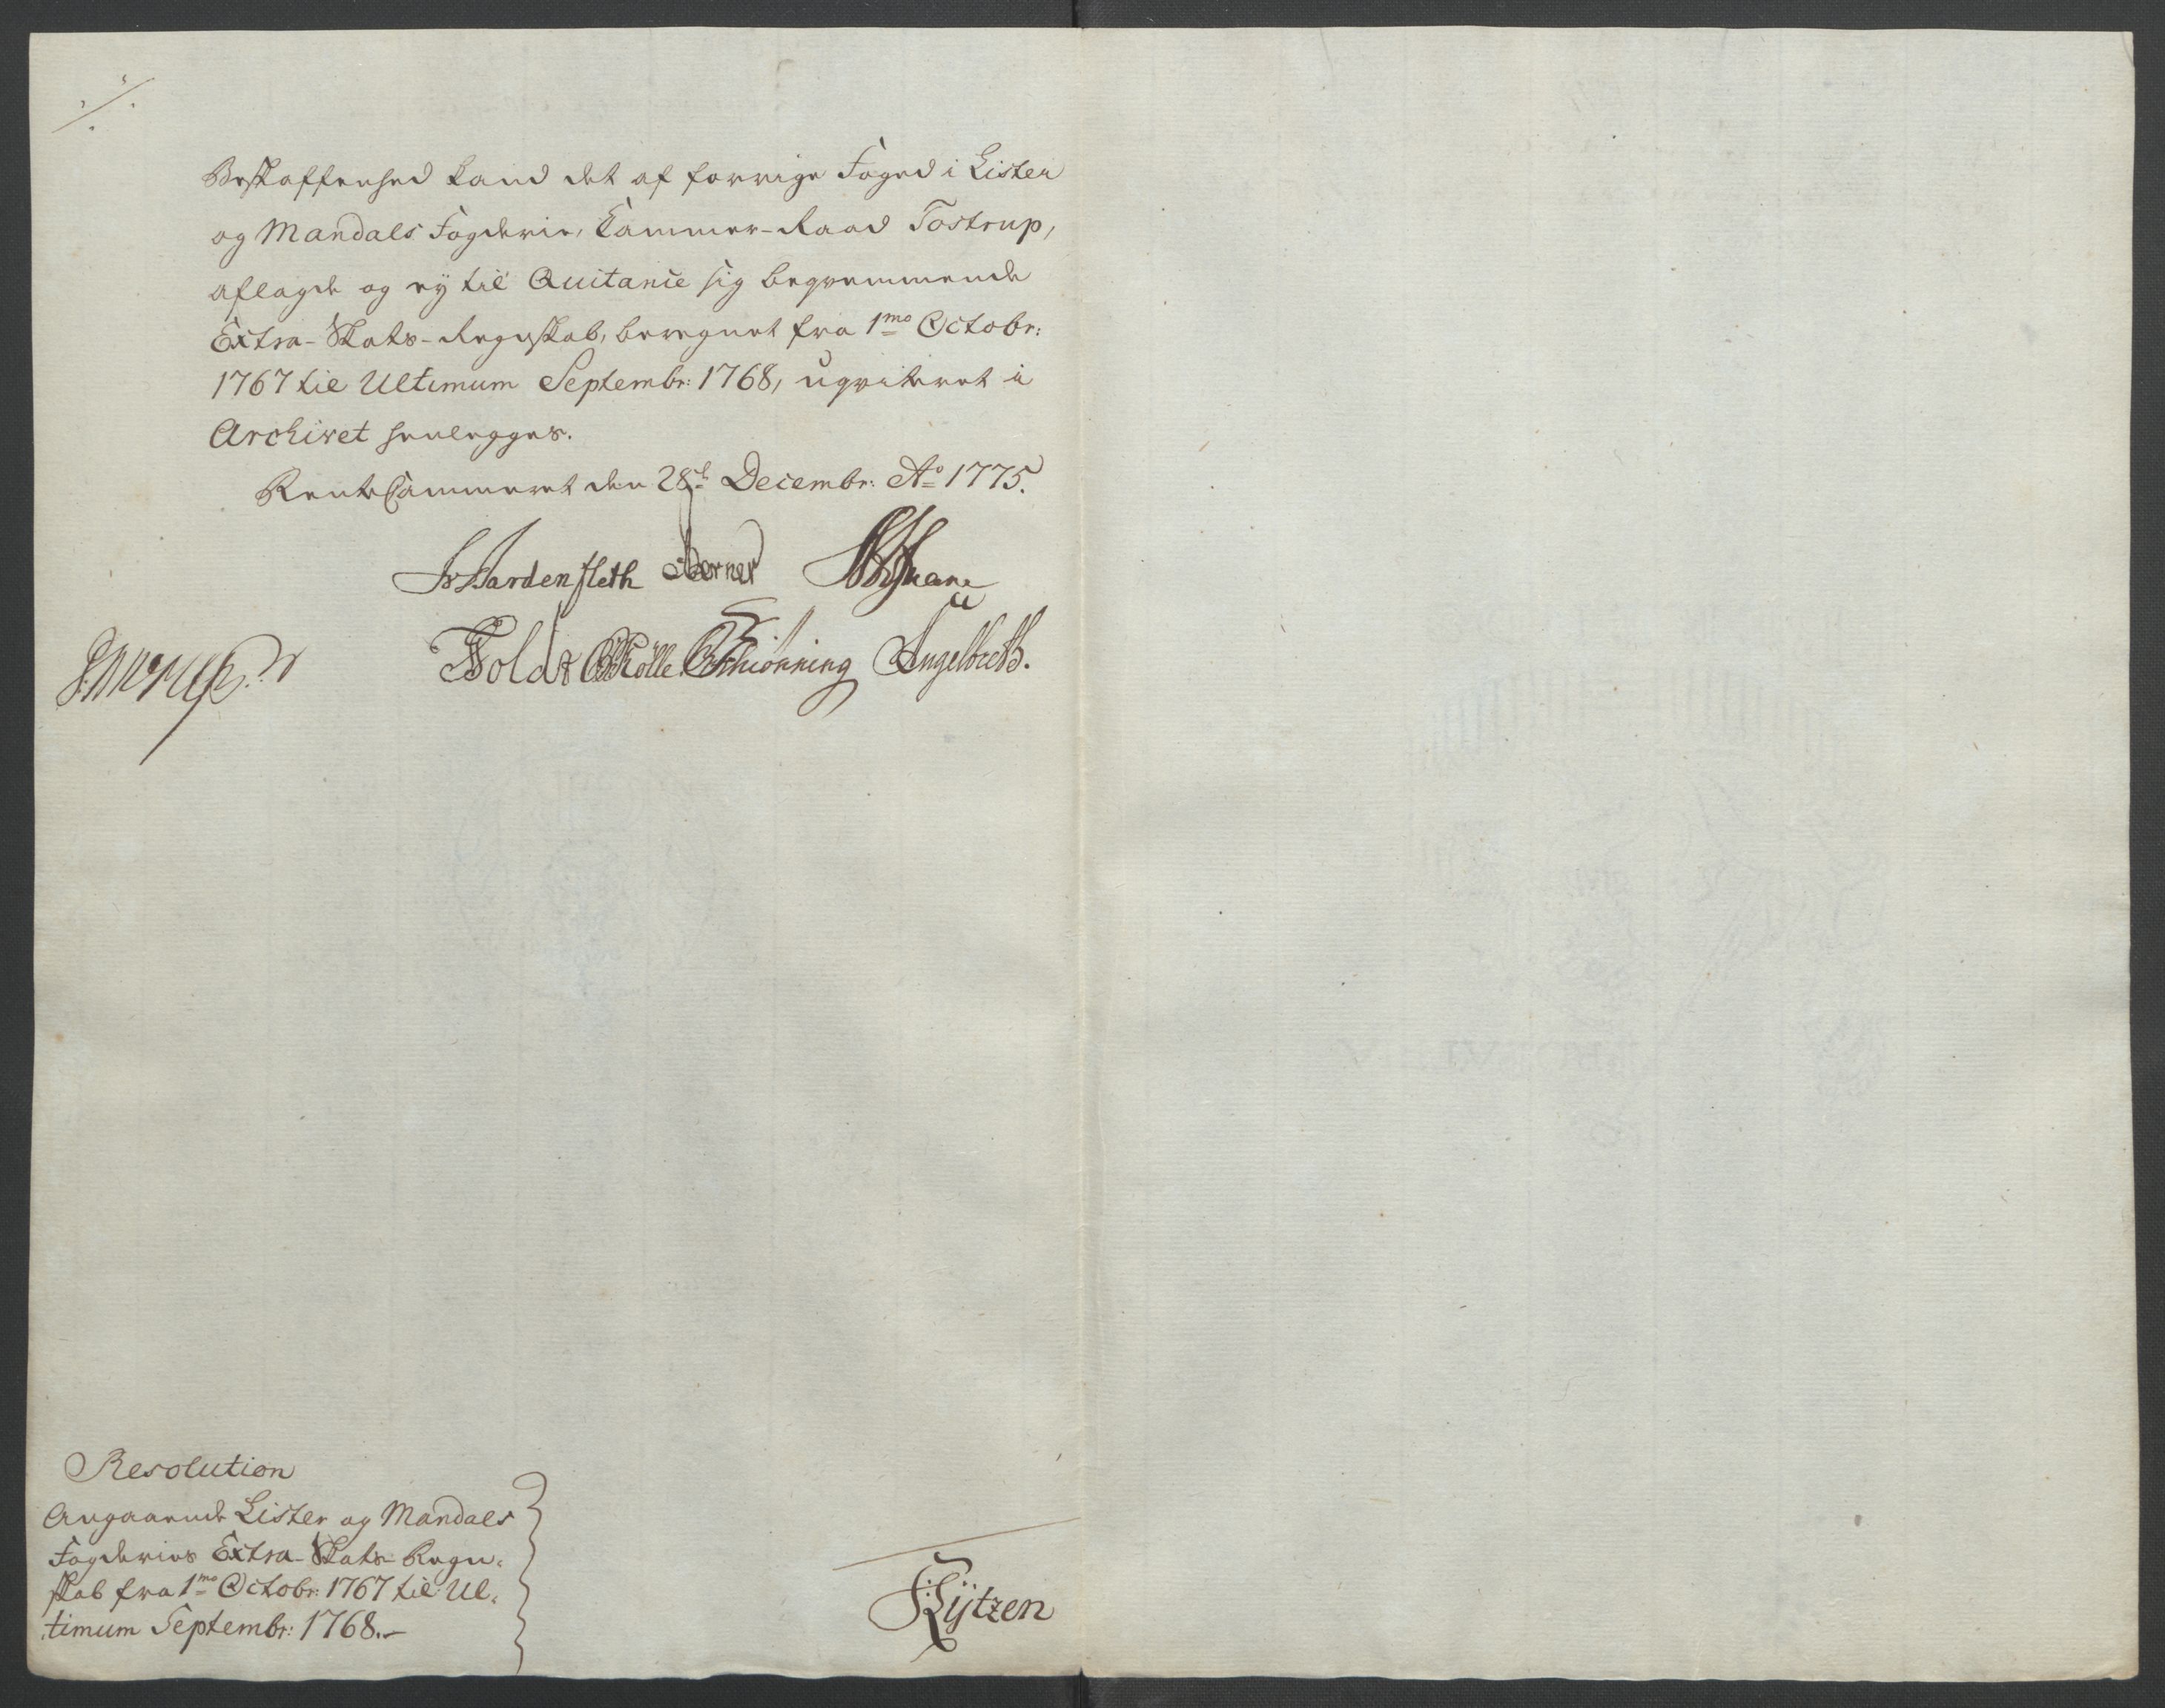 Beskaffenhed kand det af forrige Foged i Lister
og Mandals Fogderie, Cammer-Raad Tostrup,
aflagde og ey til Quitanie sig beqvemmende
Extra-Skats-Regnskab, beregnet fra 1mo Octobr:
1767 til Ultimum Septembr: 1768, uqviteret i
Archivet henlegges.
RenteCammeret den 28de Decembr: Ao 1775.
Hardenfleth Berner
Holdt Müller Schiønning Angelbreth.
Resolution
Angaaende Lister og Mandals
Fogderies Extra-Skats-Regn-
skab fra 1mo Octobr: 1767 til Ul-
timum Septembr: 1768.-
Kijtzen